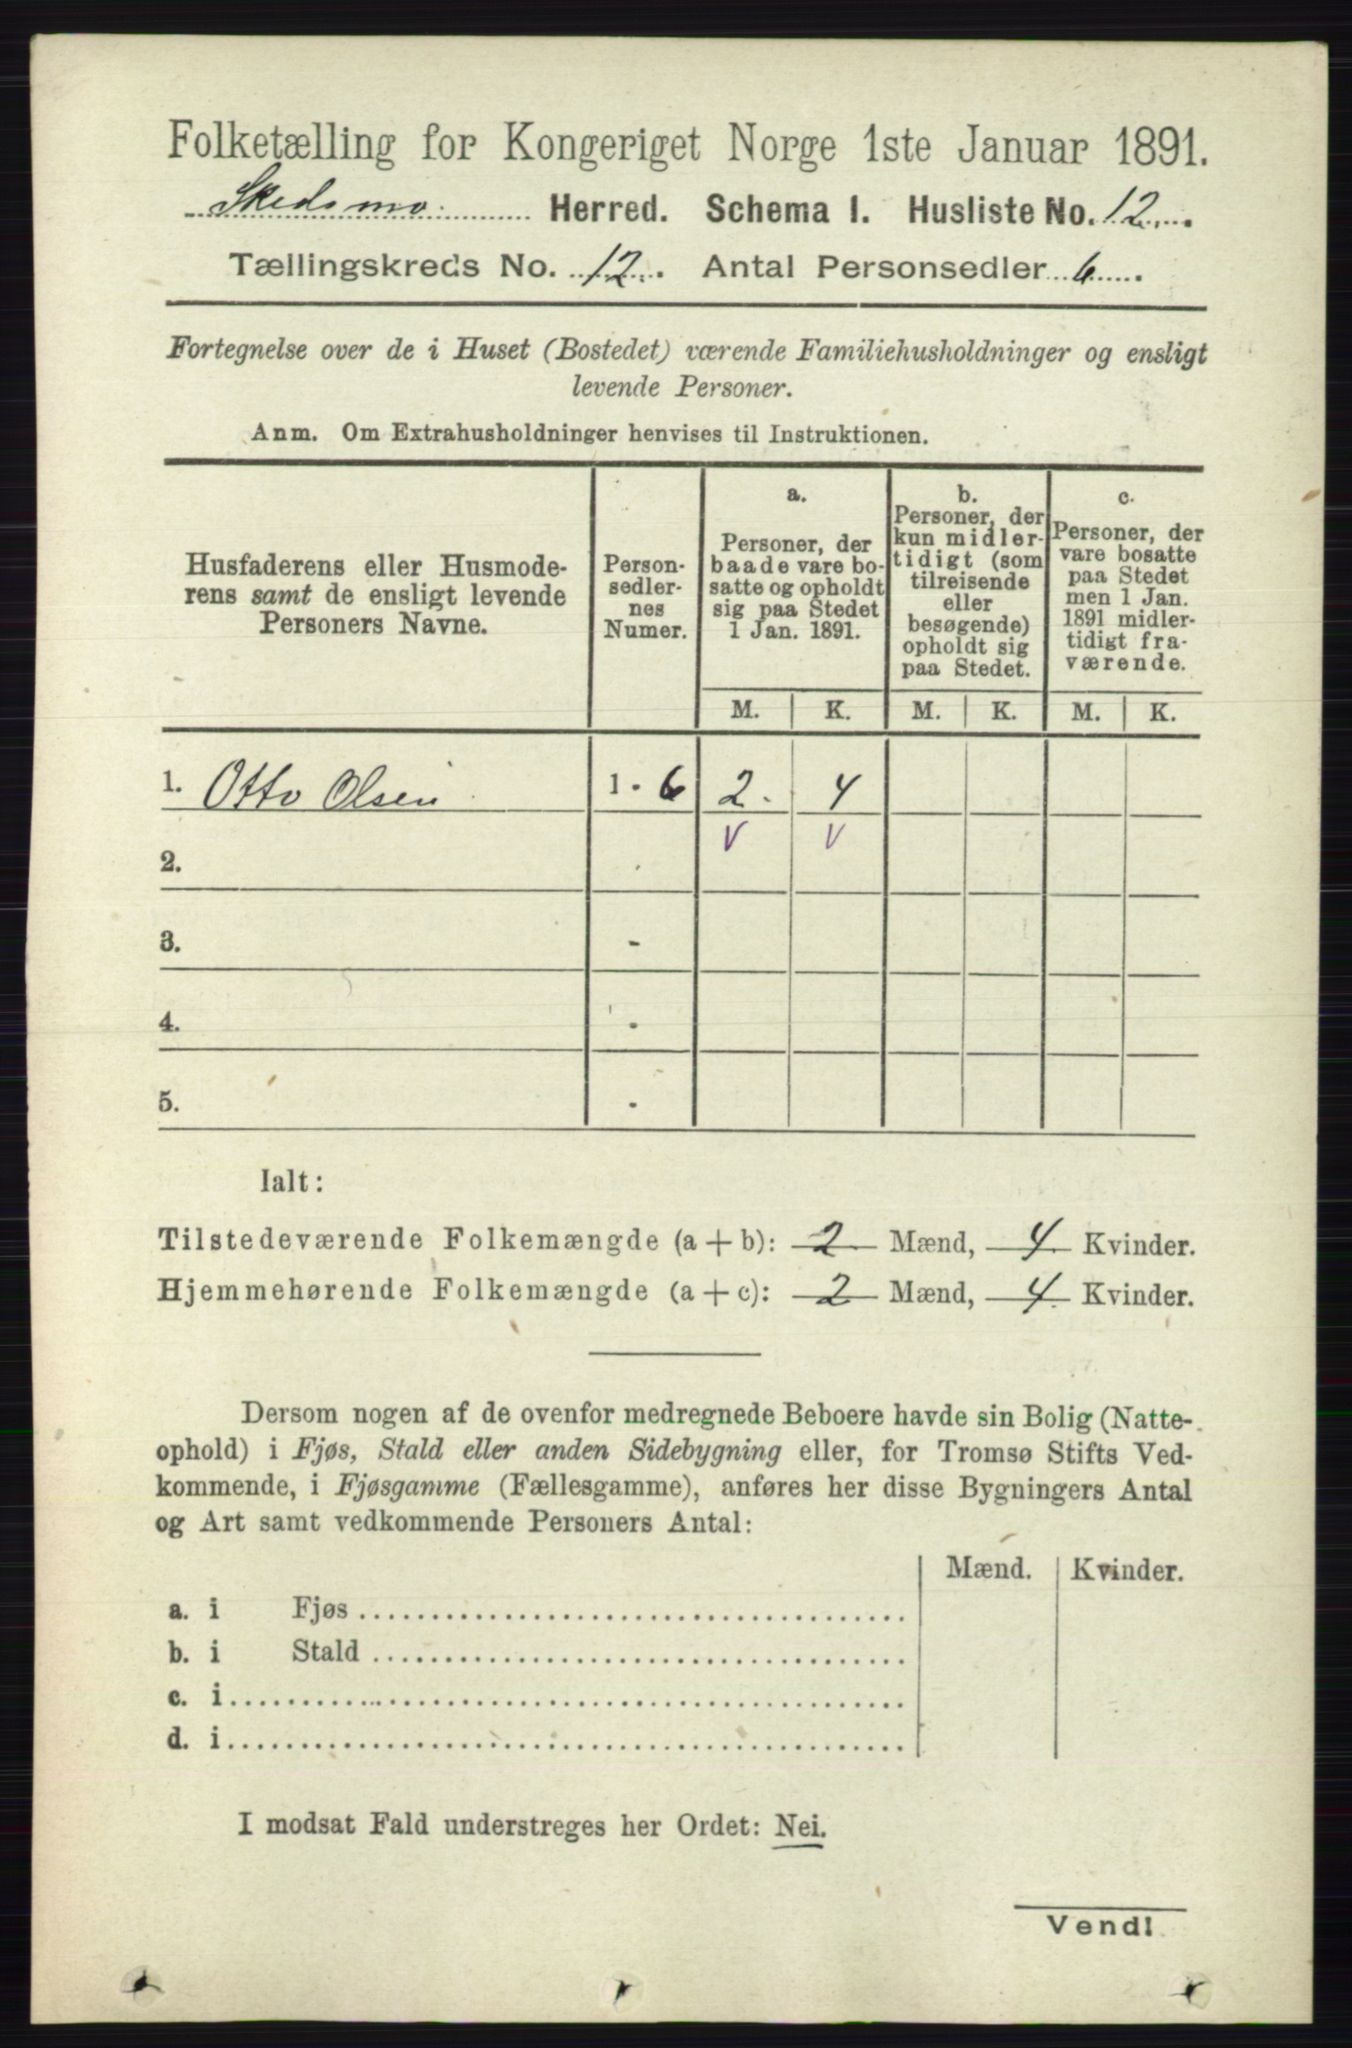 Folketælling for Kongeriget Norge 1ste Januar 1891.
Skedsmo Herred. Schema I. Husliste No. 12.
Tællingskreds No. 12. Antal Personsedler 6
Fortegnelse over de i Huset (Bostedet) værende Familiehusholdninger og ensligt
levende Personer.
Anm. Om Extrahusholdninger henvises til Instruktionen.
Husfaderens eller Husmode-
rens samt de ensligt levende
Personers Navne.
Person-
sedler-
nes
Numer.
a.
Personer, der
baade vare bo-
satte og opholdt
sig paa Stedet
1 Jan. 1891.
b.
Personer, der
kun midler-
tidigt (som
tilreisende
eller
besøgende)
opholdt sig
paa Stedet.
c.
Personer, der
vare bosatte
paa Stedet
men 1 Jan.
1891 midler-
tidigt fra-
værende.
M. K. M. K. M. K.
1. Otto Olsen 1 - 6 2 4
V V
2. -
3. -
4. -
5. -
Ialt:
Tilstedeværende Folkemængde (a + b): 2 Mænd, 4 Kvinder.
Hjemmehørende Folkemængde (a + c): 2 Mænd, 4 Kvinder.
Dersom nogen af de ovenfor medregnede Beboere havde sin Bolig (Natte-
ophold) i Fjøs, Stald eller anden Sidebygning eller, for Tromsø Stifts Ved-
kommende, i Fjøsgamme (Fællesgamme), anføres her disse Bygningers Antal
og Art samt vedkommende Personers Antal:
Mænd. Kvinder.
a. i Fjøs
b. i Stald
c. i
d. i
I modsat Fald understreges her Ordet: Nei.
Vend!